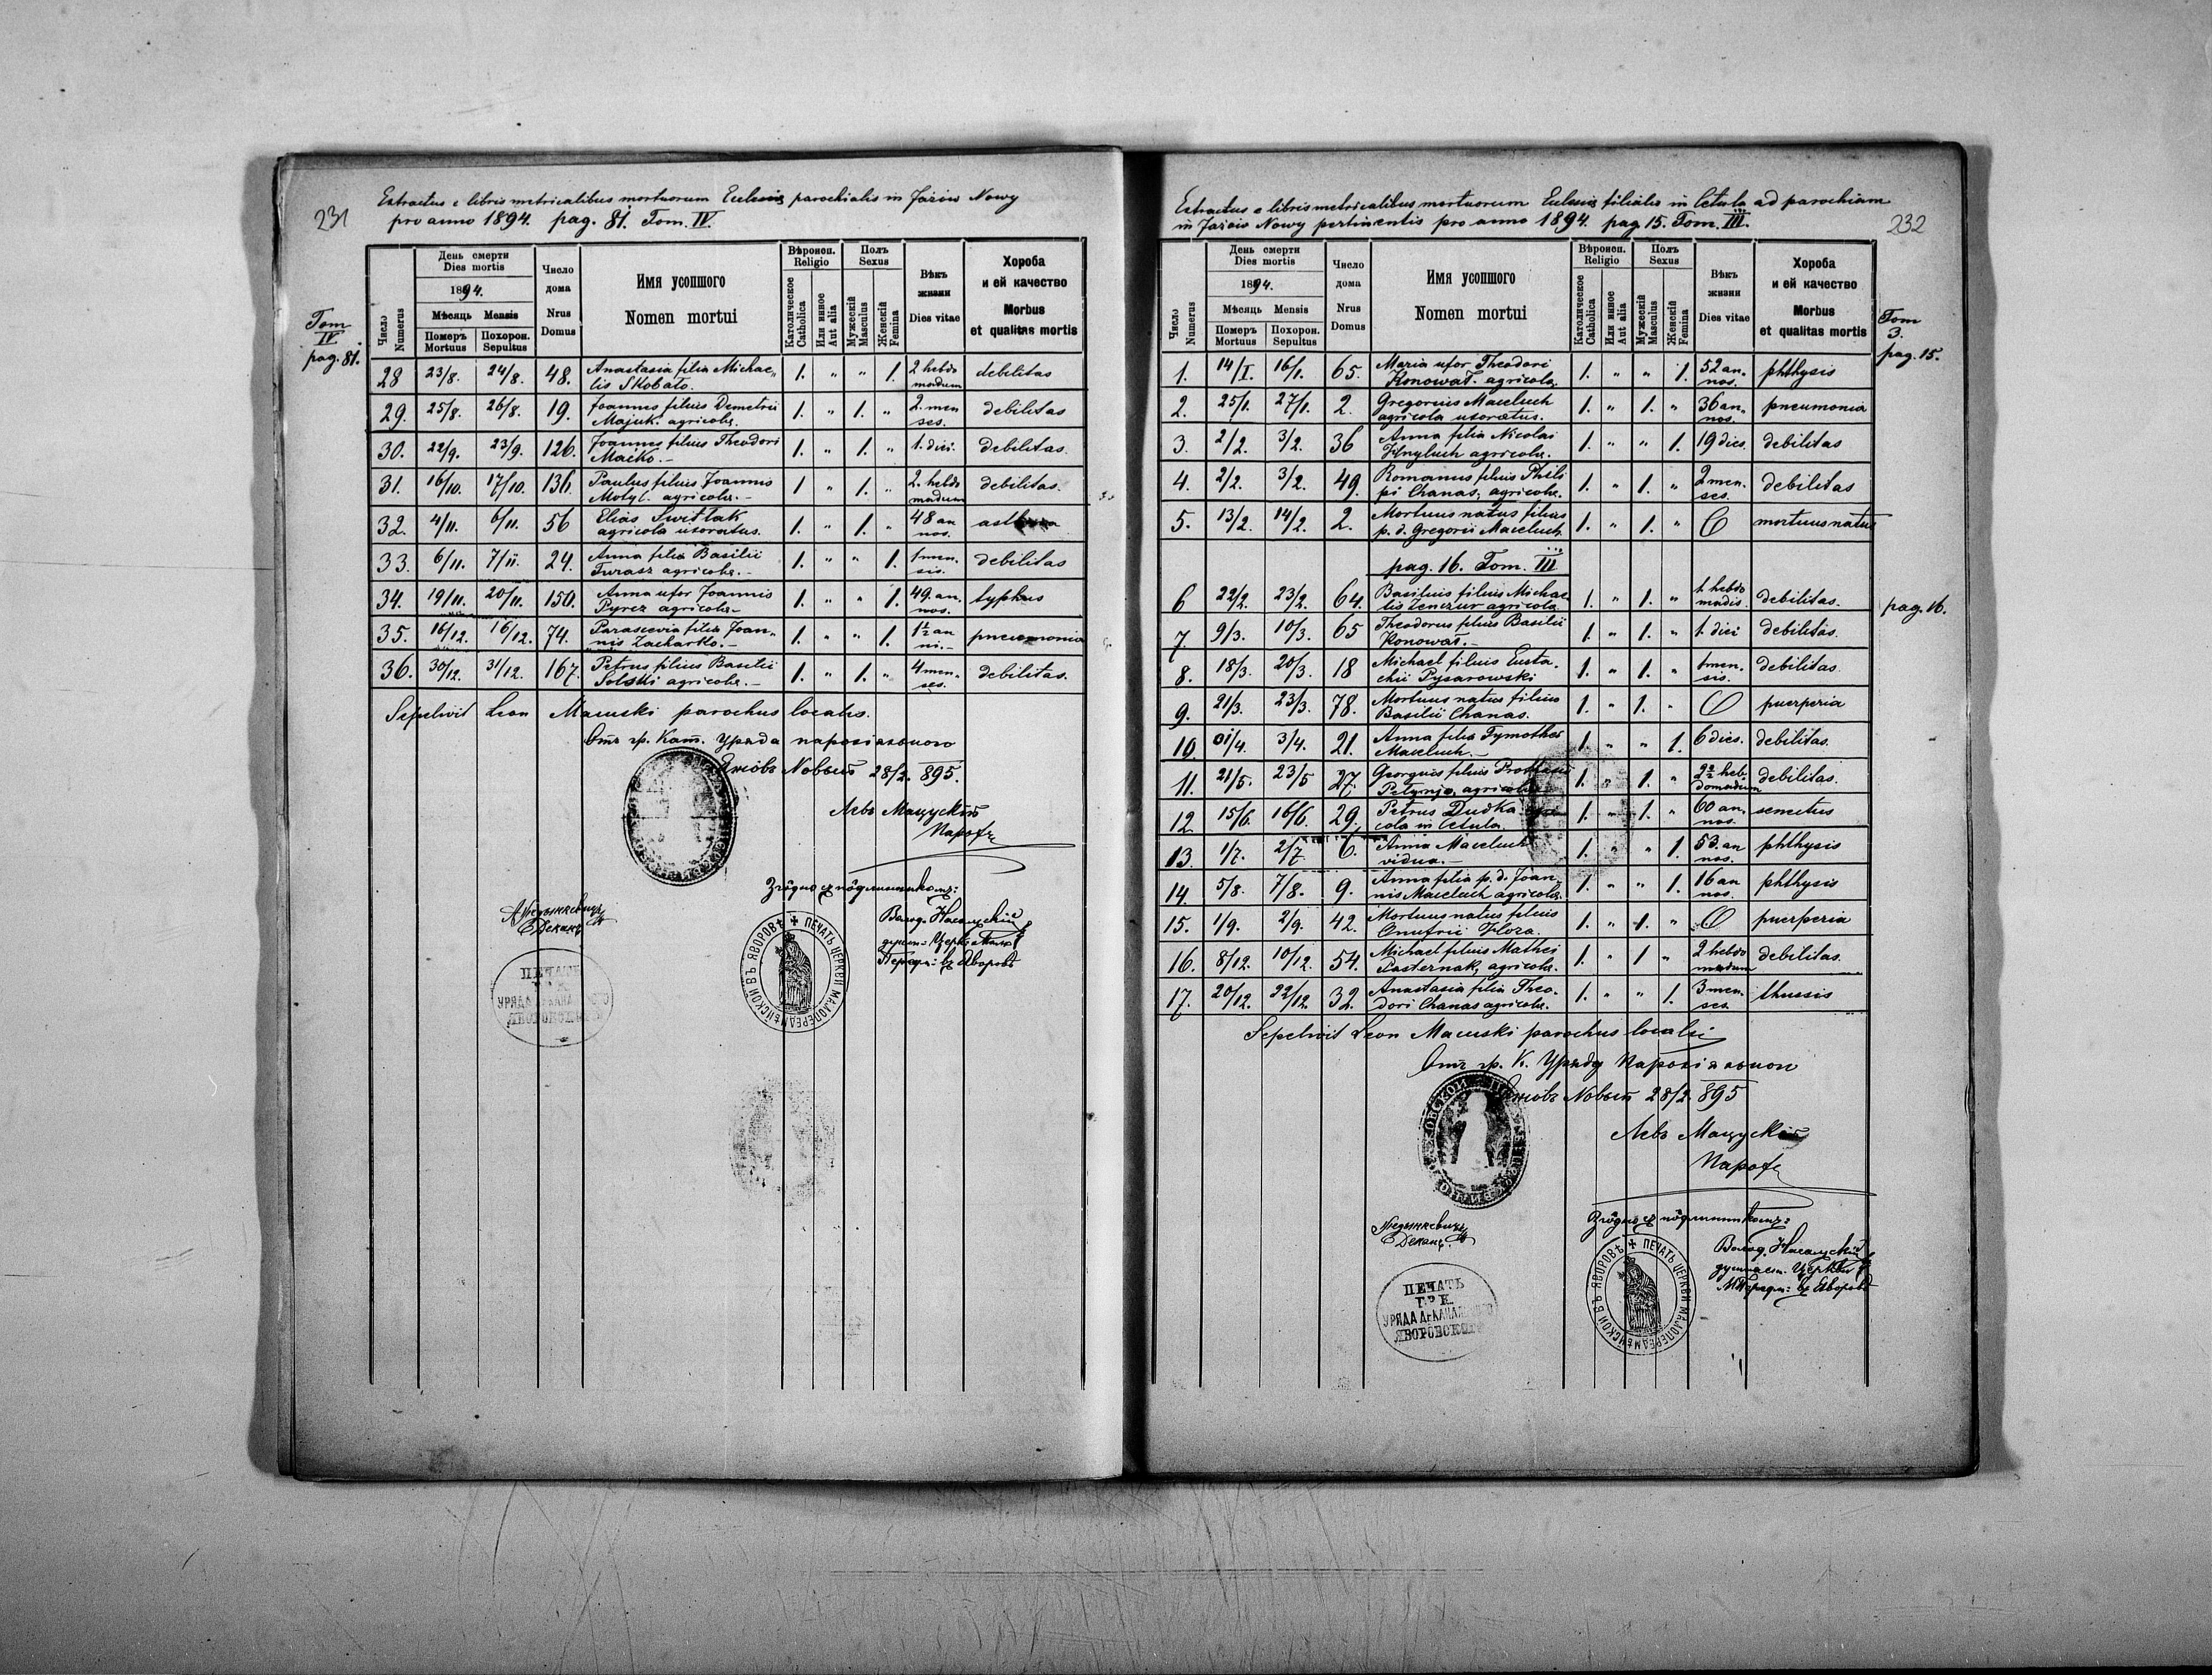 231
Extractus e libris metricalibus mortuorum Eclesiæ parochialis in Jażów Nowy
pro anno 1894. pag. 81. Tom. IV.
Tom
IV
pag. 81.
Число Numerus
День смерти Dies mortis
1894.
Мѣсяць Mensis
Померъ Mortuus
Похорон. Sepultus
Число дома Nrus Domus
Имя усопшого Nomen mortui
Вѣроисп. Religio
Католическое Catholica
Или иное Aut alia
Полъ Sexus
Мужескій Masculus
Женскій Femina
Вѣкъ жизни Dies vitae
Хороба и ей качество Morbus et qualitas mortis
28 23/8. 24/8. 48. Anastasia filia Michae„ 1. „ „ 1. 2 hebdo debilitas
lis Skobało. madum
29. 25/8. 26/8. 19. Joannes filius Demetrii 1. „ 1. „ 2. men debilitas
Majuk. agricolæ. ses.
30. 22/9. 23/9. 126. Joannes filius Theodori 1. „ 1. „ 1. diei. debilitas.
Maćko. –
31. 16/10. 17/10. 136. Paulus filius Joannis 1 „ 1. „ 2. hebdo debilitas.
Motyl. agricolæ. – madum
32. 4/11. 6/11. 56 Elias Switłak 1. „ 1. „ 48 an asthma
agricola uxoratus. nos.
33. 6/11. 7/11. 24. Anna filia Basilii 1. „ „ 1. 1 men„ debilitas
Turasz agricolæ. – sis.
34. 19/11. 20/11. 150. Anna uxor Joannis 1. „ „ 1. 49. an. typhus
Pyrcz agricolæ – nos.
35. 16/12. 16/12. 74. Parascevia filia Joan„ 1. „ „ 1. 1½ an pneumonia
nis Zacharko. – ni. –
36. 30/12. 31/12. 167. Petrus filius Basilii 1. „ 1. „ 4 men„ debilitas.
Solski agricolæ. – ses.
Sepelivit Leon Macuski parochus localis.
Отъ гр. Кат. Уряда парохіяльного
Яжôвъ Новый 28/2. 895.
Левъ Мацускій
Парохъ
Згôдно съ пôдлинникомъ:
Деканъ
Церк.
въ Яворовѣ
ПЕЧАТЬ ЦЕРКВИ МАЛОПЕРЕДМѢЙСКОЙ ВЪ ЯВОРОВѢ
ПЕЧАТЬ
Г. К.
УРЯДА ДЕКАНАЛЬНОГО
ЯВОРОВСКОГО
232
Extractus e libris metricalibus mortuorum Eclesiæ filialis in Cetula ad parochiam
in Jażów Nowy pertinentis pro anno 1894. pag 15. Tom. III.
Tom
3.
pag. 15.
Число Numerus
День смерти Dies mortis
1894.
Мѣсяць Mensis
Померъ Mortuus
Похорон. Sepultus
Число дома Nrus Domus
Имя усопшого Nomen mortui
Вѣроисп. Religio
Католическое Catholica
Или иное Aut alia
Полъ Sexus
Мужескій Masculus
Женскій Femina
Вѣкъ жизни Dies vitae
Хороба и ей качество Morbus et qualitas mortis
1. 14/I. 16/1. 65. Maria uxor Theodori 1. „ „ 1. 52 an„ phthysis
Konował. agricolæ. nos.
2. 25/1. 27/1. 2. Gregorius Maceluch 1. „ 1. „ 36 an„ pneumonia
agricola uxoratus. nos.
3. 2/2. 3/2. 36 Anna filia Nicolai 1. „ „ 1. 19 dies. debilitas
agricolæ.
4. 2/2. 3/2. 49. Romanus filius Phili 1. „ 1. „ 2 men. debilitas
pi Chanas, agricolæ. ses.
5. 13/2. 14/2. 2. Mortuus natus filius 1. „ 1. „ mortuus natus
p. d. Gregorii Maceluch.
pag. 16. Tom. III
6 22/2. 23/2. 64. Basilius filius Michae 1. „ 1. „ 1. hebdo debilitas. pag. 16.
lis agricolæ madis.
7. 9/3. 10/3. 65 Theodorus filius Basilii 1. „ 1. „ 1. diei debilitas.
Konował. –
8. 18/3. 20/3. 18 Michael filius Eusta. 1. „ 1. „ 1 men. debilitas.
chii Pysarowski sis.
9. 21/3. 23/3. 78. Mortuus natus filius 1. „ 1. „ puerperia
Basilii Chanas.
10. 01/4. 3/4. 21. Anna filia Tymothei 1. „ „ 1. 6 dies. debilitas.
Maceluch. –
11. 21/5. 23/5 27. Georgius filius 1. „ 1. „ heb. debilitas.
agricolæ domadum
12 15/6. 16/6. 29. Petrus Dudka agri 1. „ 1. „ 60 an. senectus
cola in Cetula. nos.
13. 1/7. 2/7 6. Anna Maceluch 1. „ „ 1. 53. an phthysis
vidua. – nos.
14. 5/8. 7/8. 9. Anna filia p. d. Joan„ 1. „ „ 1. 16 an phthysis
nis Maceluch agricolæ. nos.
15. 1/9. 2/9. 42. Mortuus natus filius 1. „ 1. „ puerperia
Onufrii
16. 8/12. 10/12. 54. Michael filius Mathei 1. „ 1 „ 2 hebdo debilitas.
Pasternak, agricolæ. madum
17. 20/12. 22/12. 32. Anastasia filia Theo. 1. „ „ 1. 3 men. thussis
dori Chanas agricolæ. ses.
Sepelivit Leon Macuski parochus localis
Отъ гр. К. Уряду Парохіяльного
Яжôвъ Новый 28/2 895
Левъ Мацускій
Парохъ
Згôдно съ пôдлинникомъ:
Деканъ.
Церкви
въ Яворовѣ
ПЕЧАТЬ ЦЕРКВИ МАЛОПЕРЕДМѢЙСКОЙ ВЪ ЯВОРОВѢ
ПЕЧАТЬ
ГР. К.
УРЯДА ДЕКАНАЛЬНОГО
ЯВОРОВСКОГО